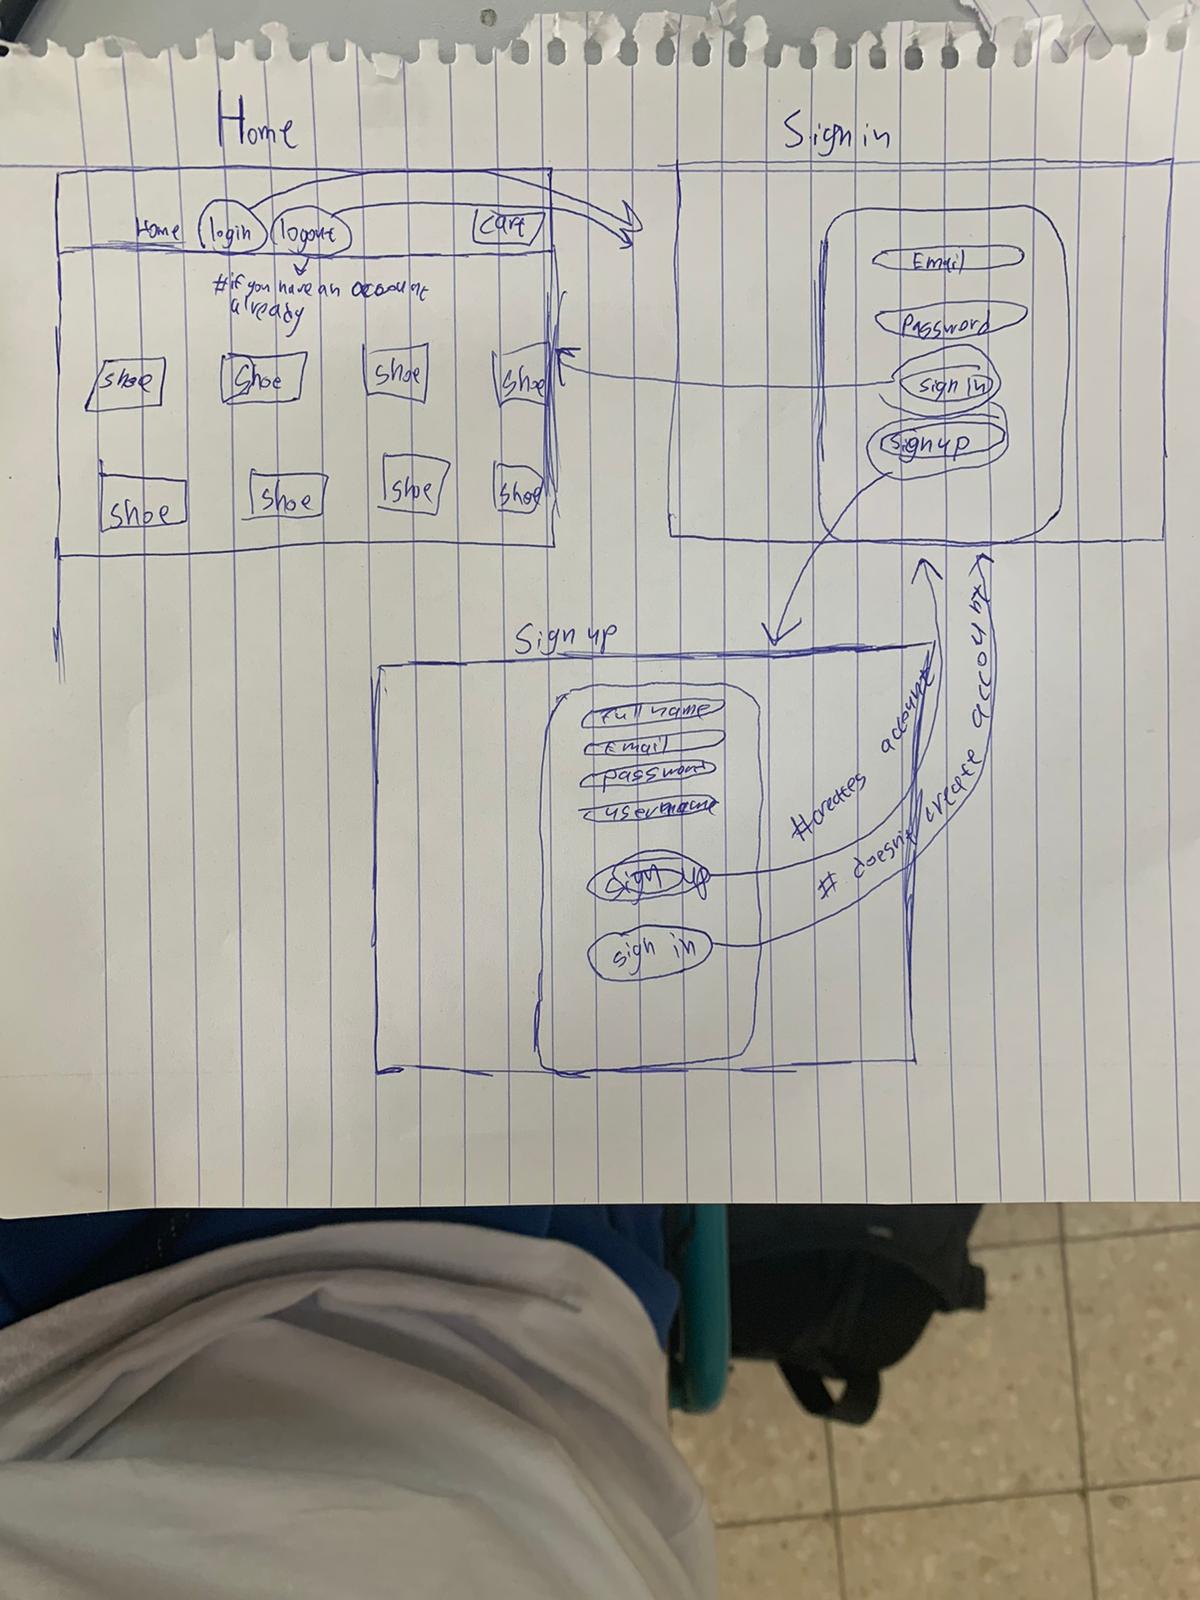 Home
Home login logout cart
#if you have an account
already
shoe shoe shoe shoe
shoe shoe shoe shoe
Sign in
Email
password
sign in
signup
Sign up
full name
Email
password
username
sign up
sign in
#creates account
# doesn't create account